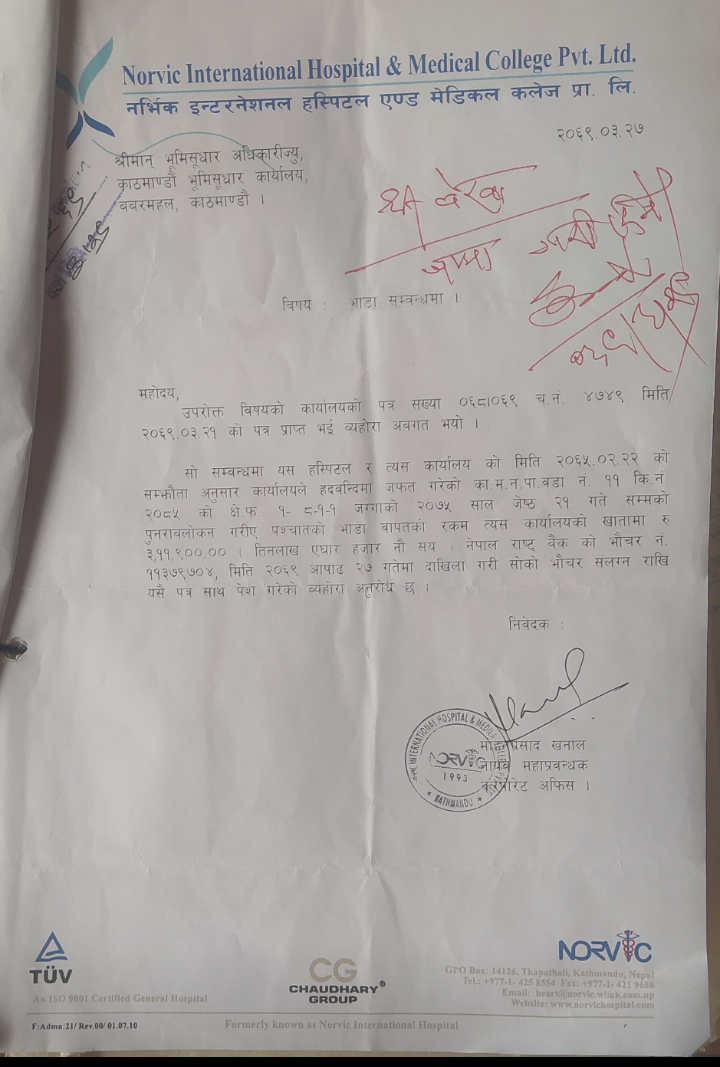 Norvic International Hospital & Medical College Pvt. Ltd.
नर्भिक इन्टरनेशनल हस्पिटल एण्ड मेडिकल कलेज प्रा. लि.
२०६९.०३.२७
श्रीमान् भूमिसुधार अधिकारीज्यू,
काठमाण्डौ भूमिसुधार कार्यालय,
बबरमहल, काठमाण्डौ ।
विषय : भाडा सम्बन्धमा ।
महोदय,
उपरोक्त विषयको कार्यालयको पत्र सख्या ०६८।०६९ च.नं. ४७४९ मिति
२०६९.०३.२१ को पत्र प्राप्त भई व्यहोरा अवगत भयो ।
सो सम्बन्धमा यस हस्पिटल र त्यस कार्यालय को मिति २०६५.०२.२२ को
सम्झौता अनुसार कार्यालयले हदवन्दिमा जफत गरेको का.म.न.पा.वडा नं. ११ कि.नं.
२०८५ को क्षे.फ. १- ८-१-१ जग्गाको २०७५ साल जेष्ठ २१ गते सम्मको
पुनरावलोकन गरीए पश्चातको भाडा वापतको रकम त्यस कार्यालयको खातामा रु
३,११,९,००.०० । तिनलाख एघार हजार नौ सय । नेपाल राष्ट्र बैक को भौचर नं.
११३७९७०४, मिति २०६९ आषाढ २७ गतेमा दाखिला गरी सोको भौचर संलग्न राखि
यसै पत्र साथ पेश गरेको व्यहोरा अनुरोध छ ।
निवेदक :
NORVIC INTERNATIONAL HOSPITAL & MEDICAL COLLEGE
NORVIC
1993
KATHMANDU
मोहनप्रसाद खनाल
नायव महाप्रवन्धक
कर्पोरेट अफिस ।
TÜV
CG
CHAUDHARY
GROUP
NORVIC
An ISO 9001 Certified General Hospital
GPO Box: 14126, Thapathali, Kathmandu, Nepal
Tel.: +977-1- 425 8554 Fax: +977-1- 421 9686
Email: heart@norvic.wlink.com.np
Website: www.norvichospital.com
F:Admn:21/ Rev.00/ 01.07.10
Formerly known as Norvic International Hospital